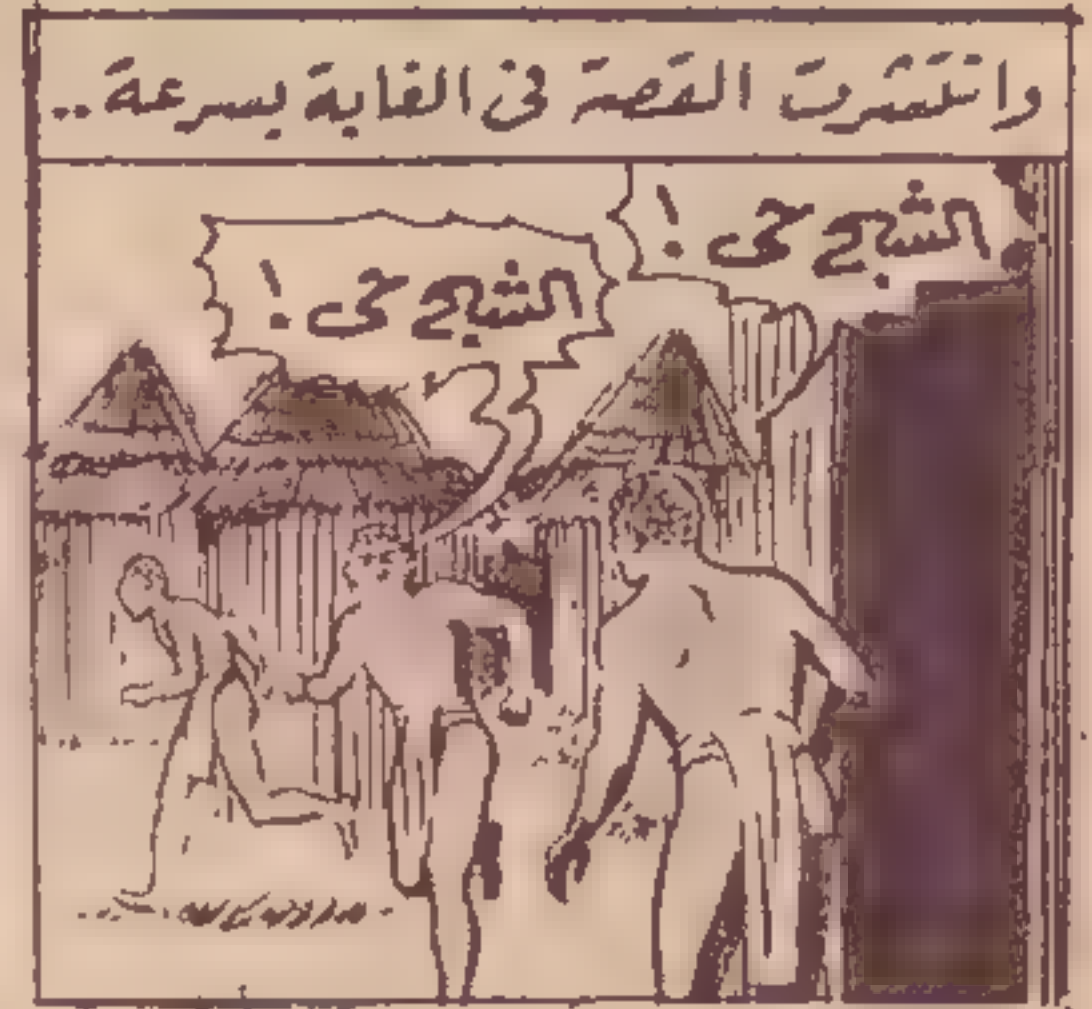 وانتشرت القصة فى الغابة بسرعة..
الشبح حى !
الشبح حى !